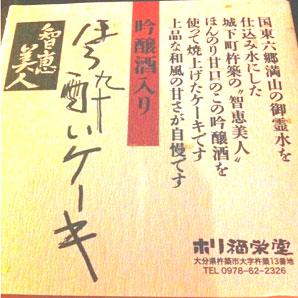 国東六郷満山の御霊水を
仕込み水にした
城下町杵築の“智恵美人”
ほんのり甘口のこの吟醸酒を
使って焼上げたケーキです
上品な和風の甘さが自慢です
吟醸酒入り
ほろ酔いケーキ
智恵美人
ホリ福栄堂
大分県杵築市大字杵築13番地
TEL 0978-62-2326